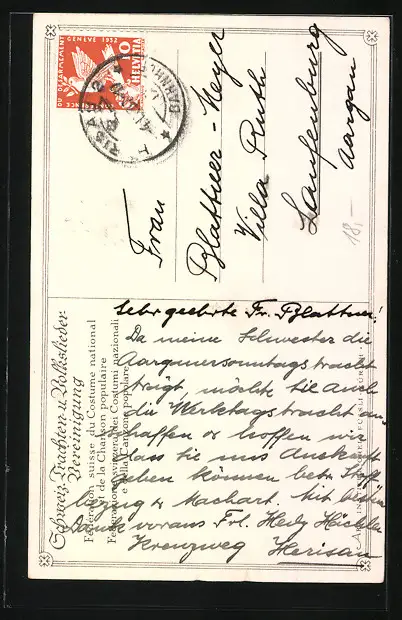 CONFERENCE DU DÉSARMEMENT GENÈVE 1932
10
HELVETIA
Frau
Blattner-Meyer
Villa Ruth
Laufenburg
Aargau
18.-
Schweiz. Trachten- u. Volkslieder-
Vereinigung
Fédération suisse du Costume national
et de la Chanson populaire
Federazione svizzera dei Costumi nazionali
e della Canzone popolare
Sehr geehrte Fr. Blattner!
Da meine Schwester die
Aargauersonntagstracht
trägt, möchte sie auch
die Werktagstracht an-
schaffen & hoffen wir
dass sie uns Auskunft
geben können betr. Stoff
bezug & Machart. Mit bestem
Dank voraus Frl. Hedy
Kreuzweg Herisau